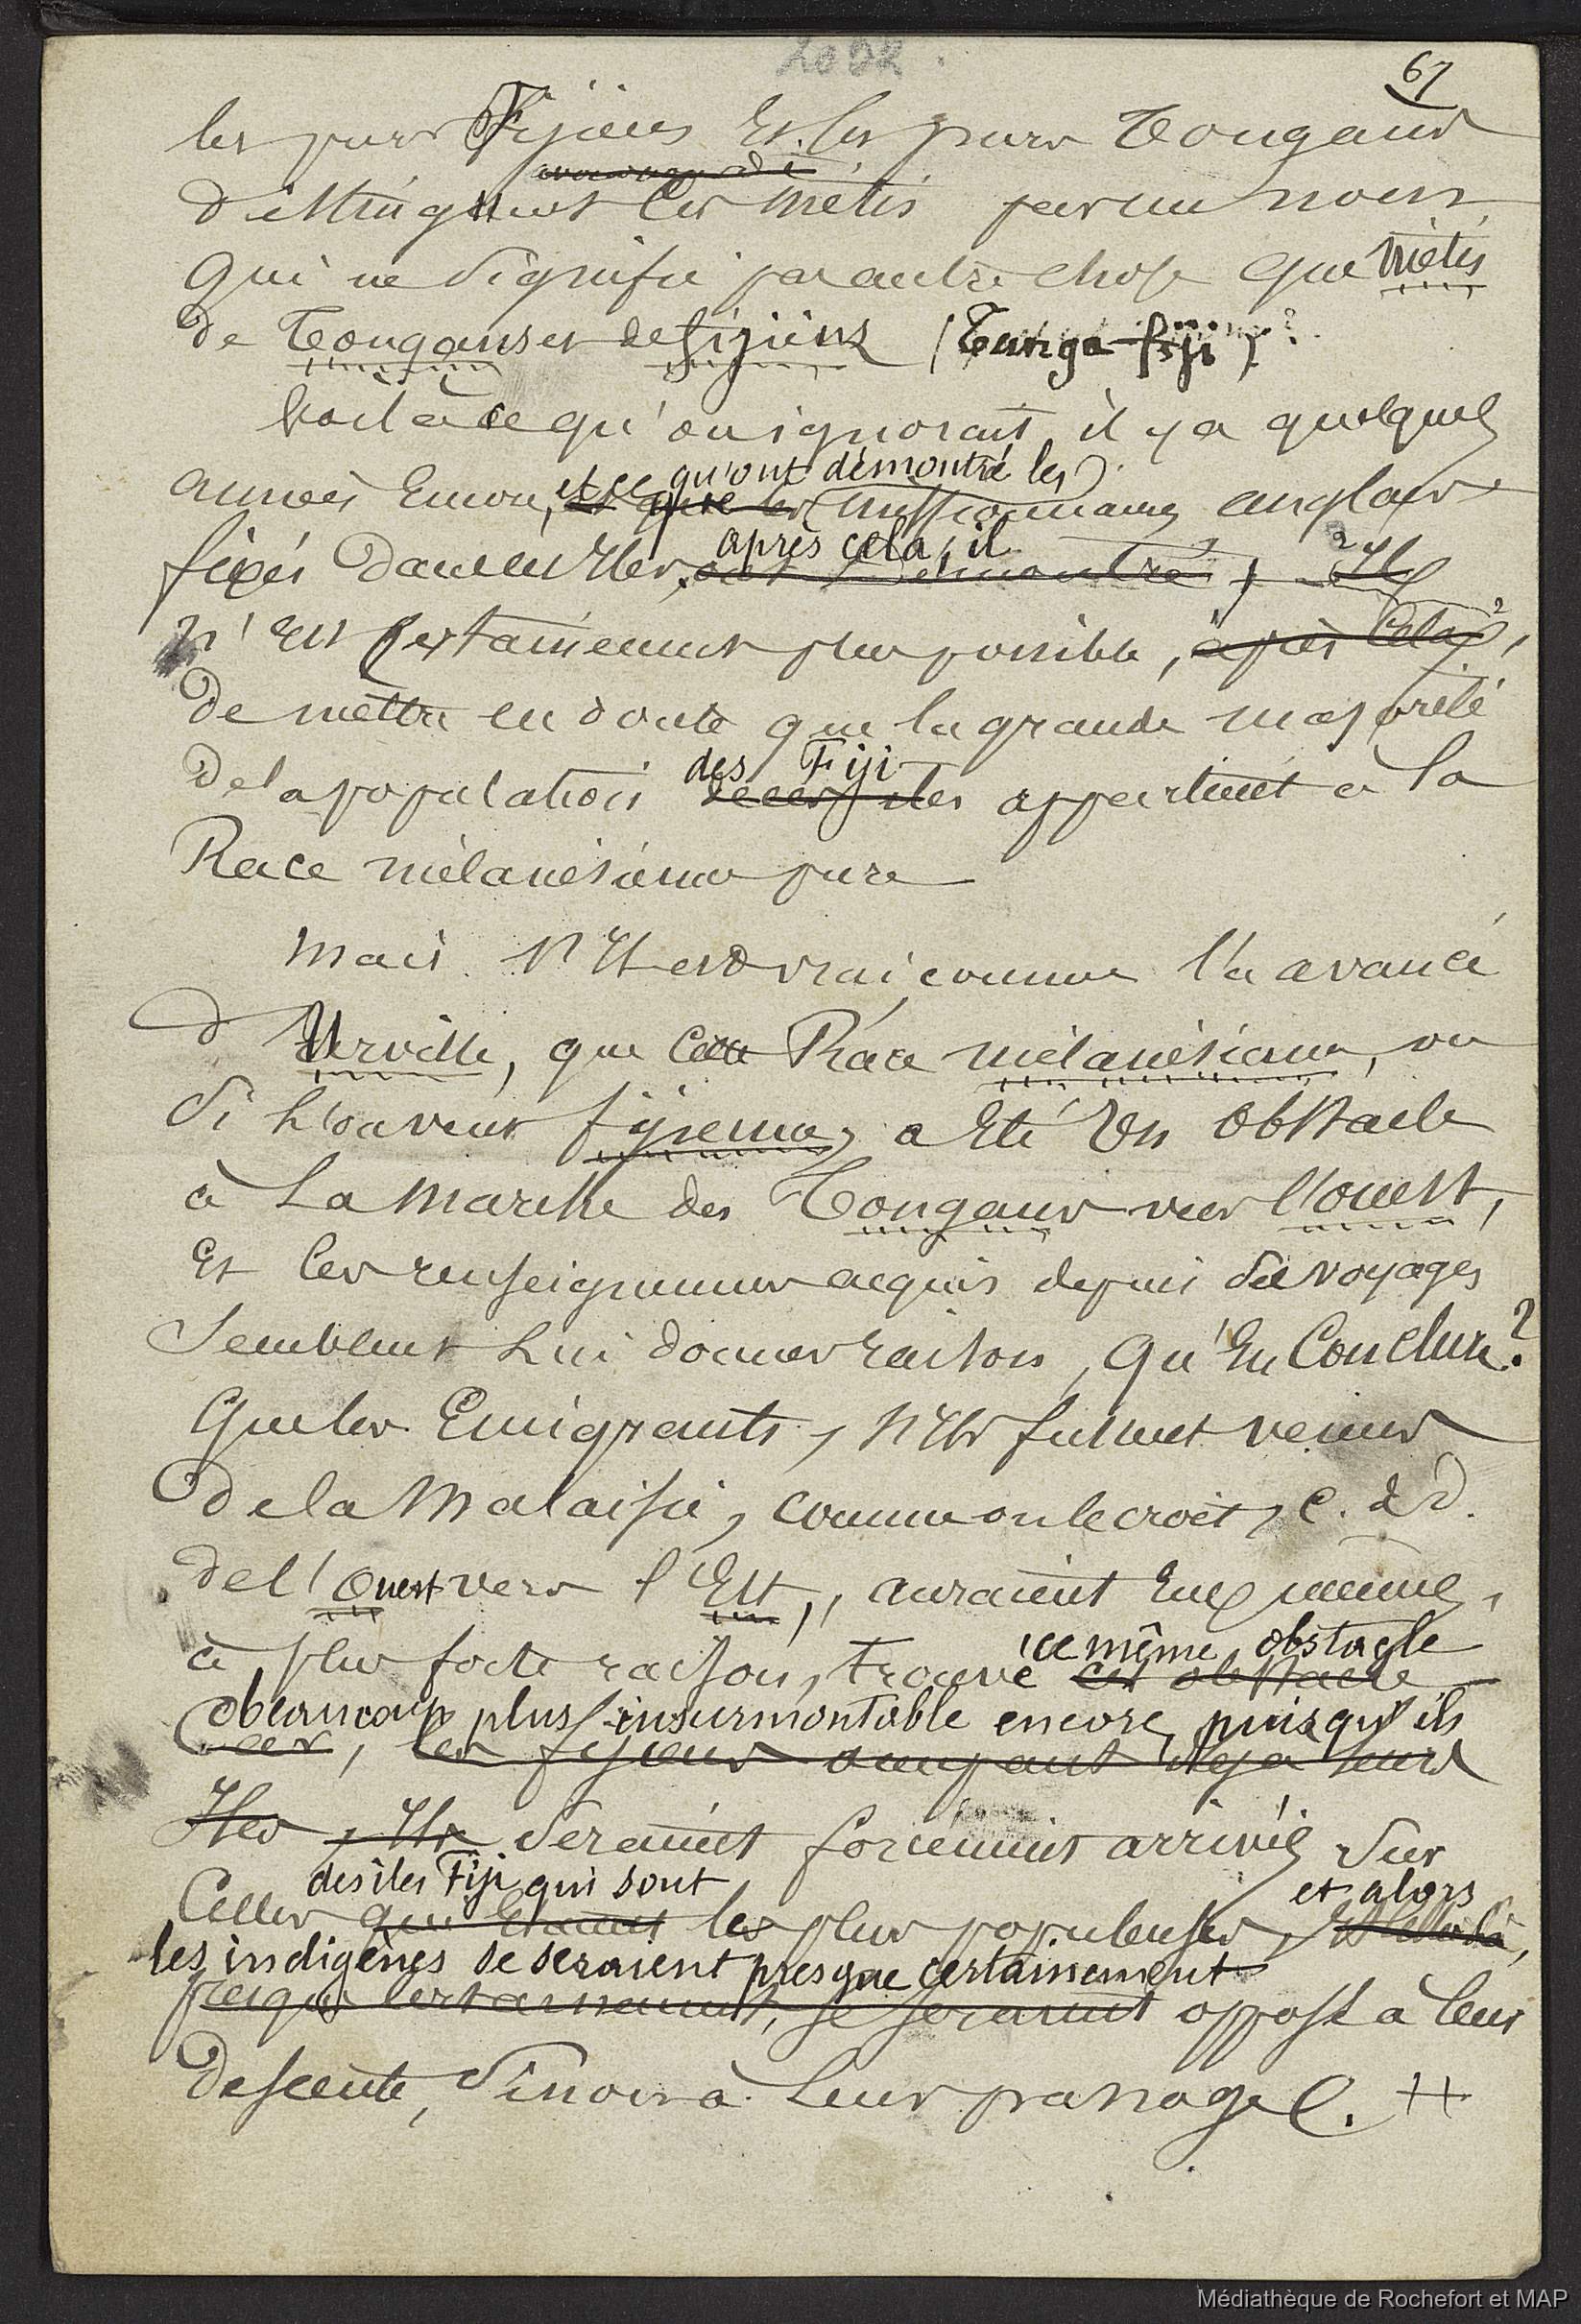 67
les purs Fijiens et les purs Tongans
distinguent les métis par un nom
qui ne signifie pas autre chose que métis
de Tongans et de fijiens (Tonga-fiji).
Voilà ce qu'on ignorait il y a quelques
et ce qu'ont démontré les
années encore, missionnaires anglais
après cela, il
fixés dans ces Iles, ont démontré, Ils
n'est certainement plus possible, après cela,
de mettre en doute que la grande majorité
des Fiji
de la population de ces iles appartient à la
Race mélanésienne pure
Mais s'Il est vrai, comme l'a avancé
d'Urville, que cette Race mélanésienne, ou
si l'on veut fijienne, a été un obstacle
à la marche des Tongans vers l'ouest,
et les renseignements acquis depuis ses voyages
semblent lui donner raison, qu'en conclure?
Que les Emigrants, s'Ils fussent venus
de la Malaisie, comme on le croit, c. à d.
de l'ouest vers l'Est, auraient eux mêmes,
ce même obstacle
à plus forte raison, trouvé cet obstacle
beaucoup plus insurmontable encore, puisqu'ils
car, les fijiens occupant déjà leurs
Iles, Ils seraient forcément arrivés sur
des îles Fiji qui sont et alors
Celles qui étaient les plus populeuses,
les indigènes se seraient presque certainement
presque certainement, se seraient opposé à leur
descente, sinon à leur passage.
Médiathèque de Rochefort et MAP